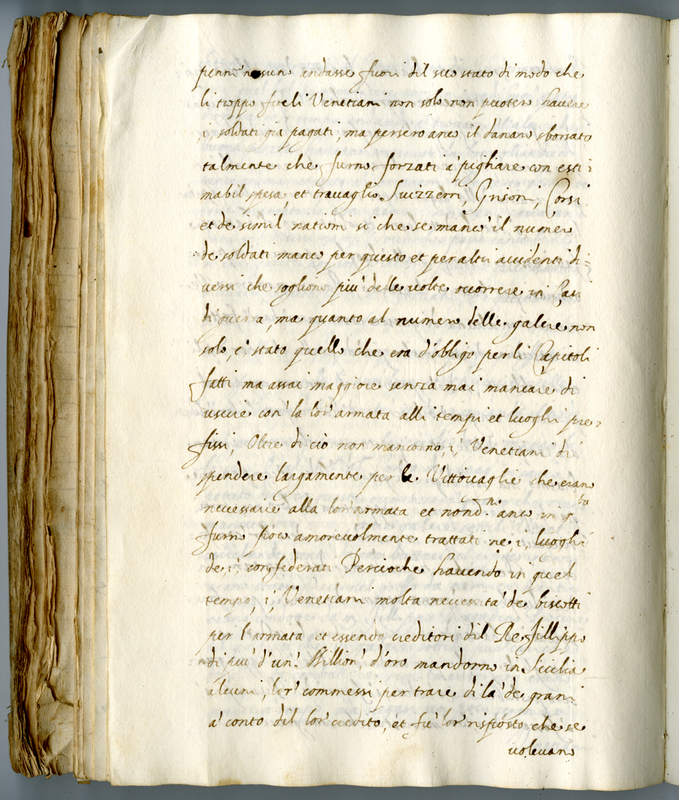 nesun' andasse fuori dil suo stato di modo che
li troppo fideli Venetiani non solo non puoteno havere
i, soldati già pagati, ma persero anco il danaro sborsato
talmente che furno forzati à pigliare con esti
mabil spesa, et travaglio Suizzeri, Grisoni, Corsi
et de simil nationi si che se mancò il numero
de soldati manco per questo et per altri accidenti di
versi che sogliono più delle volte occorrere in Casi
di guerra, ma quanto al numero delle galere non
solo, è stato quello che era d'obligo per li Capitoli
fatti ma assai maggiore senza mai mancare di
uscire con la lor' armata alli tempi et luoghi pre=
fissi, Oltre di ciò non mancorno, i, Venetiani di
spendere largamente per le Vittovaglie che erano
necessarie alla lor' armata et non anco in
furno amorevolmente trattati ne i, luoghi
de, i, confederati Percioche havendo in quel
tempo, i, Venetiani molta necessità de biscotti
per l'armata et essendo creditori dil Re Fillippo
di più d'un' Million' d'oro mandorno in Sicilia
alcuni, lor' commessi per trare di là de grani
à conto dil lor' credito, et fù lor' risposto che se
volevano